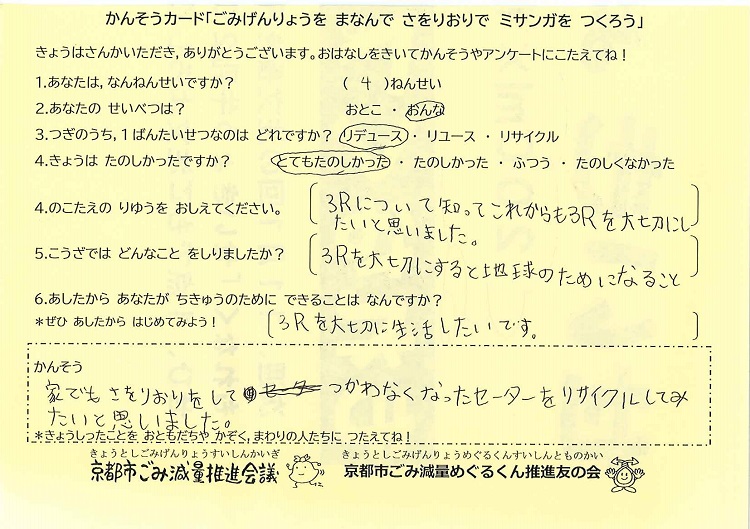 かんそうカード「ごみげんりょうを まなんで さをりおりで ミサンガを つくろう」
きょうはさんかいただき,ありがとうございます。おはなしをきいてかんそうやアンケートにこたえてね!
1.あなたは,なんねんせいですか? ( 4 )ねんせい
2.あなたの せいべつは? おとこ ・ おんな
3.つぎのうち,1ばんたいせつなのは どれですか? リデュース ・ リユース ・ リサイクル
4.きょうは たのしかったですか? とてもたのしかった ・ たのしかった ・ ふつう ・ たのしくなかった
4.のこたえの りゆうを おしえてください。
3Rについて知ってこれからも3Rを大切にし
たいと思いました。
5.こうざでは どんなこと をしりましたか?
3Rを大切にすると地球のためになること
6.あしたから あなたが ちきゅうのために できることは なんですか?
*ぜひ あしたから はじめてみよう!
3Rを大切に生活したいです。
かんそう
家でもさをりおりをしてセーターつかわなくなったセーターをリサイクルしてみ
たいと思いました。
*きょうしったことを おともだちや かぞく,まわりの人たちに つたえてね!
きょうとしごみげんりょうすいしんかいぎ きょうとしごみげんりょうめぐるくんすいしんとものかい
京都市ごみ減量推進会議 京都市ごみ減量めぐるくん推進友の会